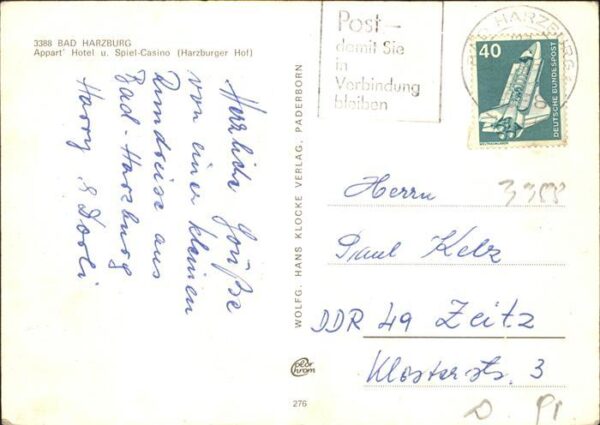 3388 BAD HARZBURG
Appart' Hotel u. Spiel-Casino (Harzburger Hof)
Herzliche Grüße
von einer kleinen
Rundreise aus
Bad-Harzburg
Harry & Dorli
WOLFG. HANS KLOCKE VERLAG, PADERBORN
Color
chrom
276
Post –
damit Sie
in
Verbindung
bleiben
HARZBURG
40
DEUTSCHE BUNDESPOST
3388
Herrn
Paul Kelz
DDR 49 Zeitz
Klosterstr. 3